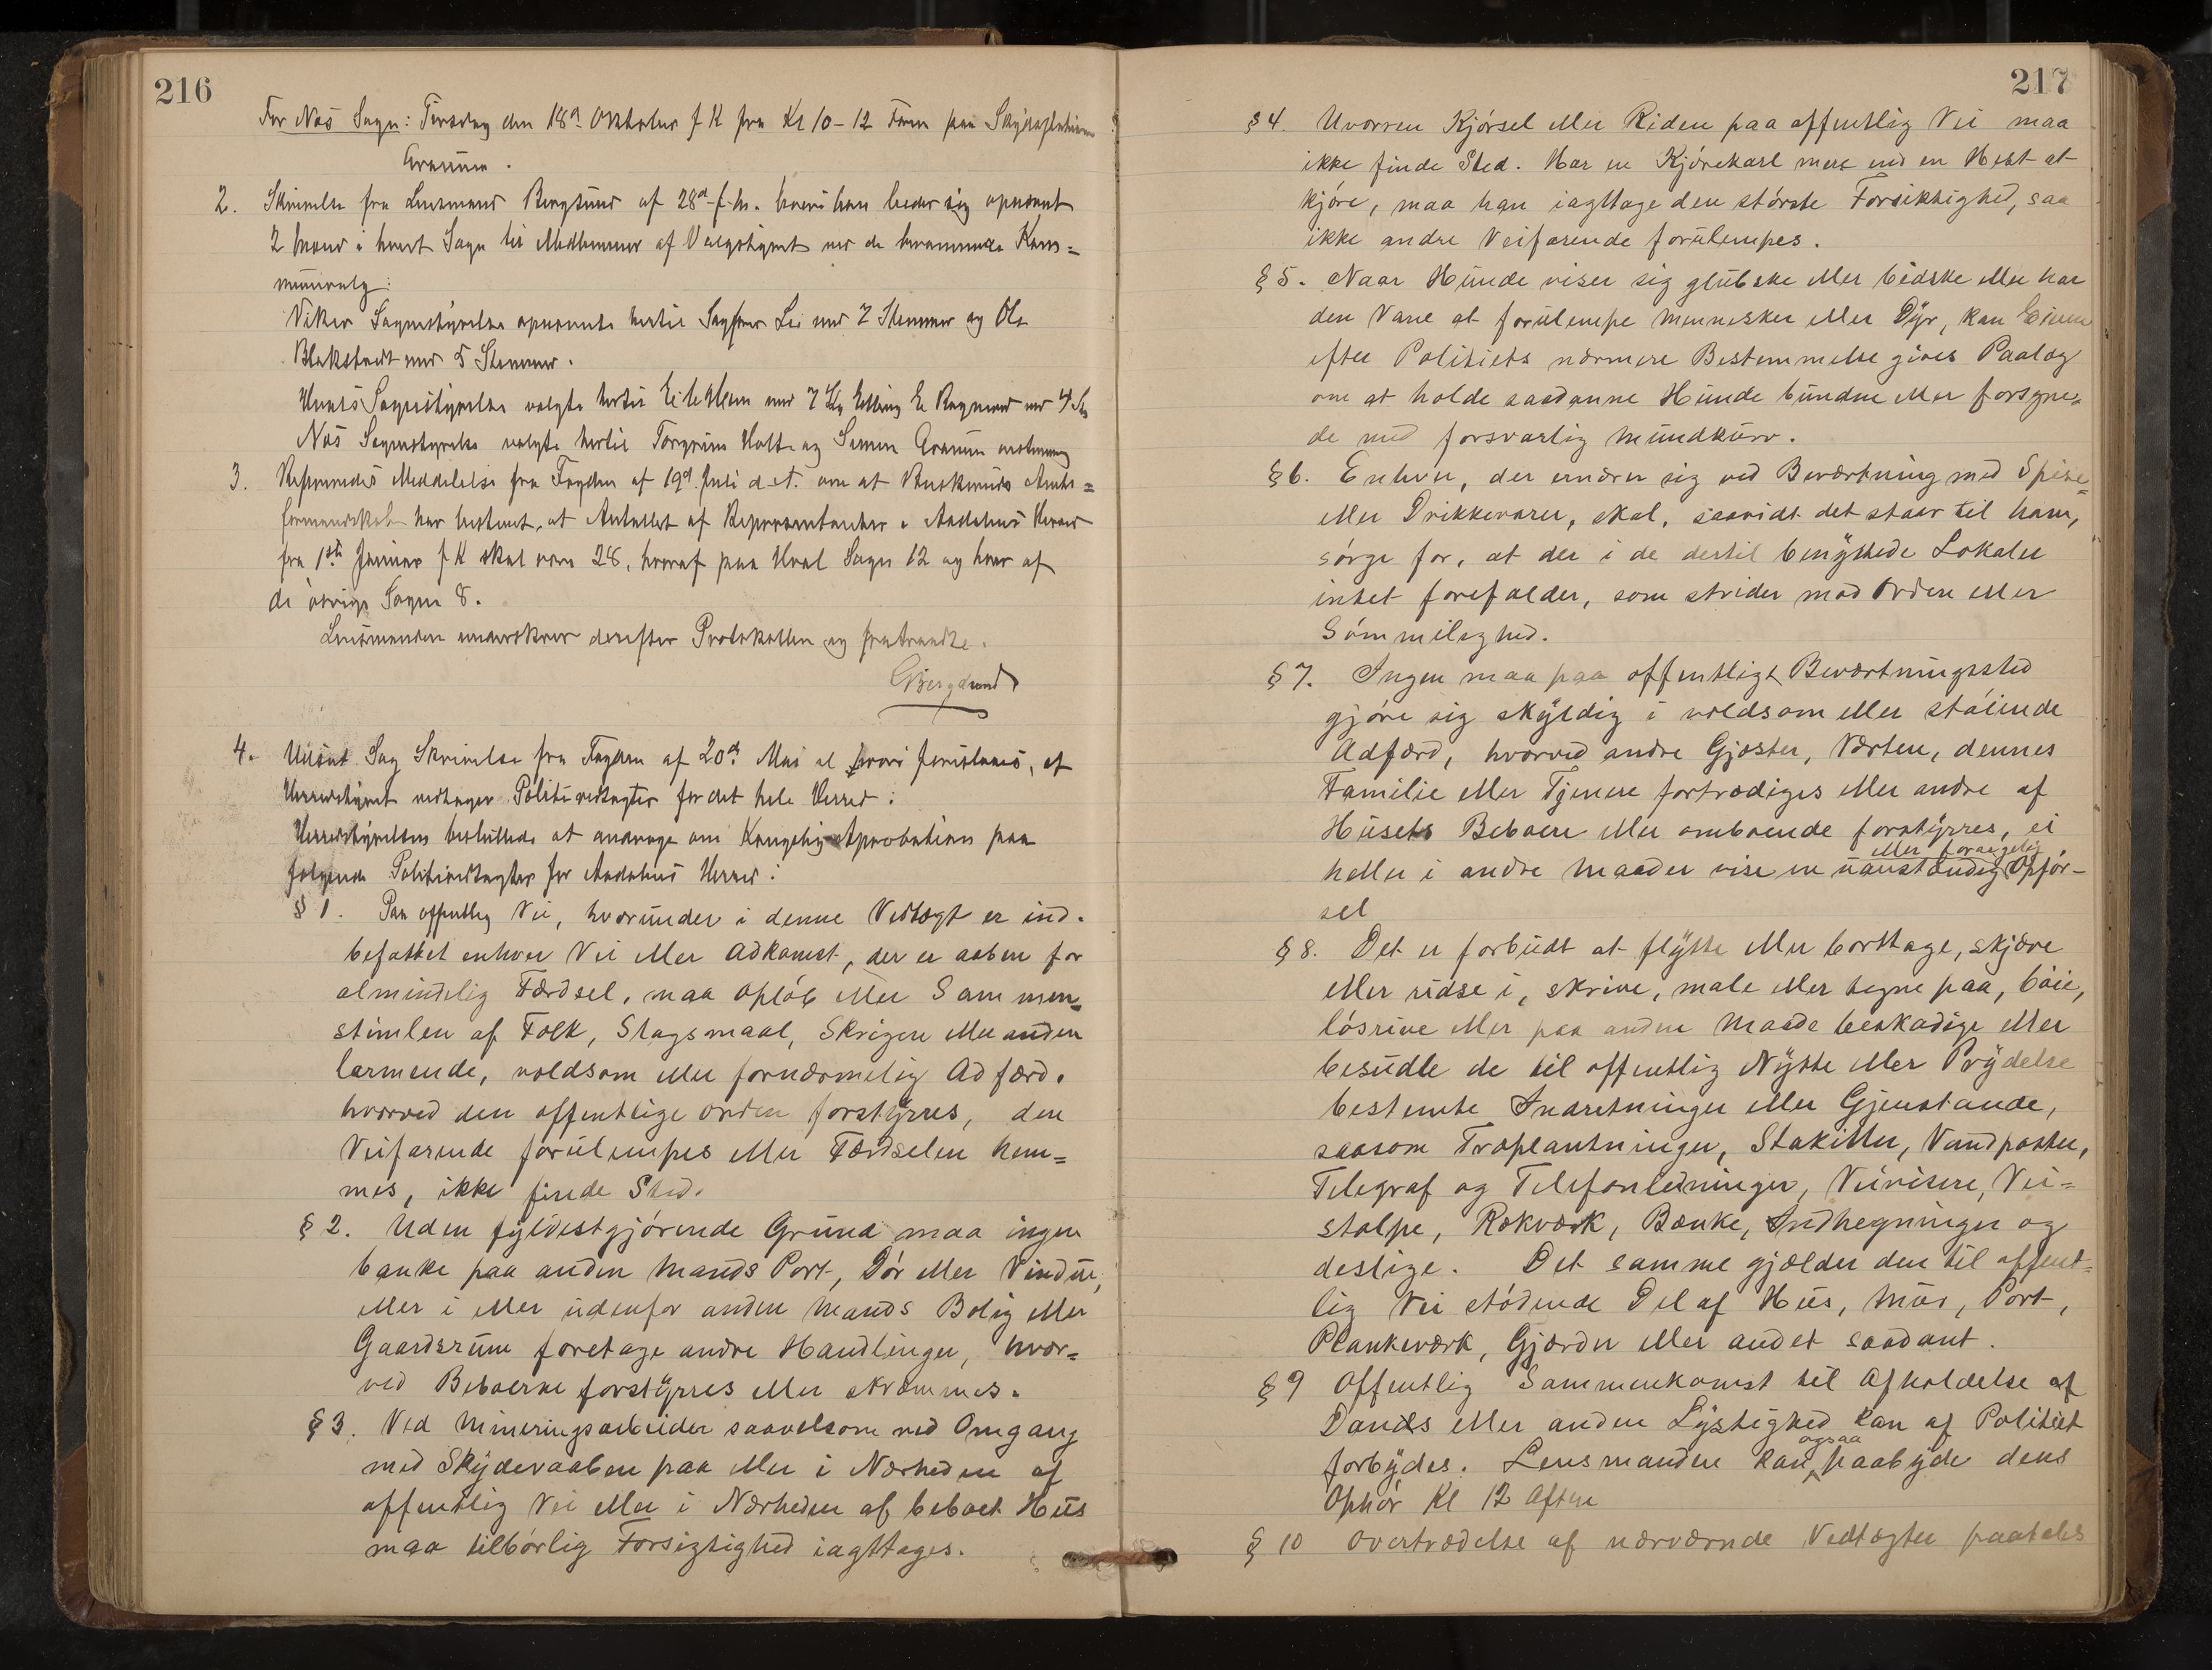 216
For Næs Sogn: Tirsdag den 18de Oktober f K fra Kl 10-12 Form paa Skydsstation
Granum.
2. Skrivelse fra Lensmand Bergsund af 28de f.M. hvori han beder sig opnævnt
2 Mænd i hvert Sogn til Medlemmer af Valgstyret ved de kommende Kom=
munevalg:
Viker Sognestyrelse opnævnte hertil Sagfører Lie med 7 Stemmer og Ole
Blakstvedt med 5 Stemmer.
Hvals Sognestyrelse valgte hertil
Næs Sognestyrelse valgte hertil Torgrim Holte og Simen Granum enstemmig
3. Refereredes Meddelelse fra Fogden af 19de Juli d.A. om at Buskeruds Amts=
formandskab har bestemt, at Antallet af Repræsentanter i Aadalens Herred
fra 1ste Januar f K skal være 28, hvoraf paa Hval Sogn 12 og hver af
de øvrige Sogne 8.
Lensmanden underskrev derefter Protokollen og fratraadte.
GBergsund
4. Udsat Sag Skrivelse fra Fogden af 20de Mai al hvori foreslaaes, at
Herredstyret vedtager Politivedtægter for det hele Herred:
Herredstyrelsen besluttede at andrage om Kongelig Aprobation paa
følgende Politivedtægter for Aadalens Herred:
§ 1. Paa offentlig Vei, hvorunder i denne Vedtægt er ind-
befattet enhver Vei eller Adkomst, der er aaben for
almindelig Færdsel, maa Opløb eller Sammen=
stimlen af Folk, Slagsmaal, Skrigen eller anden
larmende, voldsom eller fornærmelig Adfærd,
hvorved den offentlige Orden forstyrres, den
Veifarende forulempes eller Færdselen hem=
mes, ikke finde Sted.
§ 2. Uden fyldestgjørende Grund maa ingen
banke paa anden Mands Port, Dør eller Vindue,
eller i eller udenfor anden Mands Bolig eller
Gaardsrum foretage andre Handlinger, hvor=
ved Beboerne forstyrres eller skræmmes.
§ 3. Ved Mineringsarbeider saavelsom ved Omgang
med Skydevaaben paa eller i Nærheden af
offentlig Vei eller i Nærheden af beboet Hus
maa tilbørlig Forsigtighed iagttages.
217
§ 4. Uvorren Kjørsel eller Riden paa offentlig Vei maa
ikke finde Sted. Har en Kjørekarl mere end en Hest at
kjøre, maa han iagttage den største Forsiktighed, saa
ikke andre Veifarende forulempes.
§ 5. Naar Hunde viser sig glubske eller bidske eller har
den Vane at forulempe Mennesker eller Dyr, kan Eieren
efter Politiets nærmere Bestemmelse gives Paalæg
om at holde saadanne Hunde bundne eller forsyne=
de med forsvarlig Mundkurv.
§ 6. Enhver, der ernærer sig ved Beværtning med Spise=
eller Drikkevarer, skal, saavidt det staar til ham,
sørge for, at der i de dertil benyttede Lokaler
intet forefalder, som strider mod Orden eller
Sømmelighed.
§ 7. Ingen maa paa offentligt Beværtningssted
gjøre sig skyldig i voldsom eller støiende
Adfærd, hvorved andre Gjæster, Værten, dennes
Familie eller Tjenere fortrædiges eller andre af
Husets Beboere eller omboende forstyrres, ei
heller i andre Maader vise en uanstændig eller forargelig Opfør-
sel
§ 8. Det er forbudt at flytte eller borttage, skjære
eller ridse i, skrive, male eller tegne paa, bøie,
løsrive eller paa anden Maade beskadige eller
besudle de til offentlig Nytte eller Prydelse
bestemte Indretninger eller Gjenstande,
saasom Træplantninger, Stakitter, Vandposter,
Telegraf og Telefonledninger, Veivisere, Vei=
stolpe, Rækværk, Bænke, Indhegninger og
deslige. Det samme gjælder den til offent=
lig Vei stødende Del af Hus, Mur, Port,
Plankeværk, Gjærder eller andet saadant.
§ 9 Offentlig Sammenkomst til Afholdelse af
Dands eller anden Lystighed kan af Politiet
forbydes. Lensmanden kan ogsaa paabyde dens
Ophør Kl 12 Aften
§ 10 Overtrædelse af nærværnde Vedtægter paatales